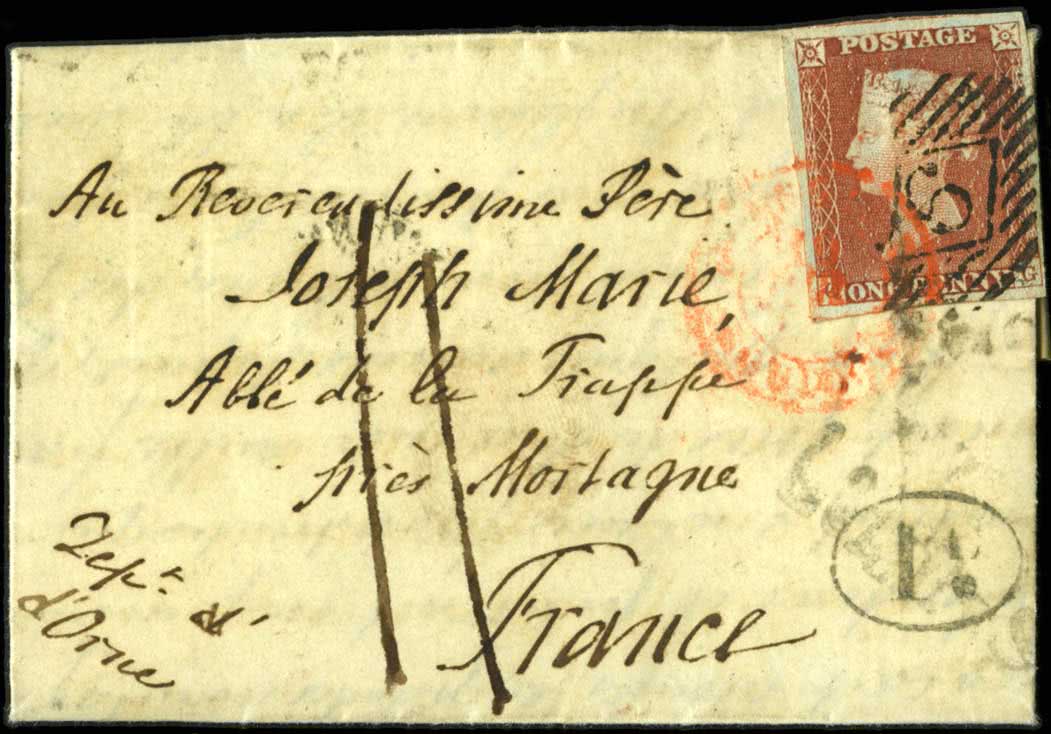 POSTAGE
ONE PENNY
G
S
Au Reverendissime Père
Joseph Marie,
Abbé de la Trappe
près Mortagne
France
Dep.t
d'Orne
11